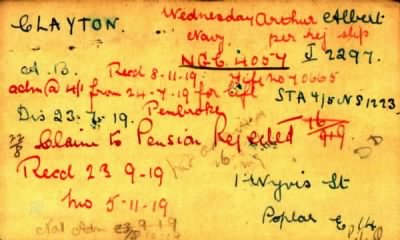 CLAYTON. Wednesday Arthur Albert
Navy per rej slip
NGC 4057 J 2297.
A. B. Recd 8-11-19. no 70665
adm @ 4/- from 24-7-19 for life STA 4/5 NS 1223
Dis 23-7-19. Pembroke
16/9+9
22/8 Claim to Pension Rejected
Recd 23 9-19
5-11-19 1 Wyvis St
Not Adm 23-9-19 Poplar E 14